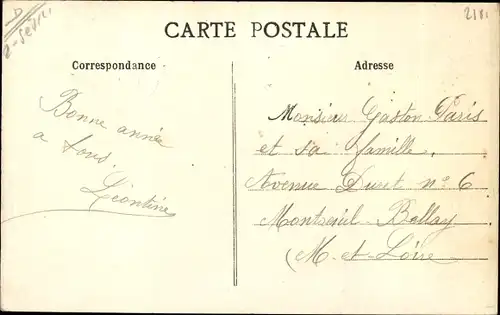 CARTE POSTALE
Correspondance
Bonne année
a tous.
Léontine
Adresse
Monsieur Gaston Paris
et sa famille.
Avenue Duret n° 6
Montreuil-Bellay
(M-et-Loire